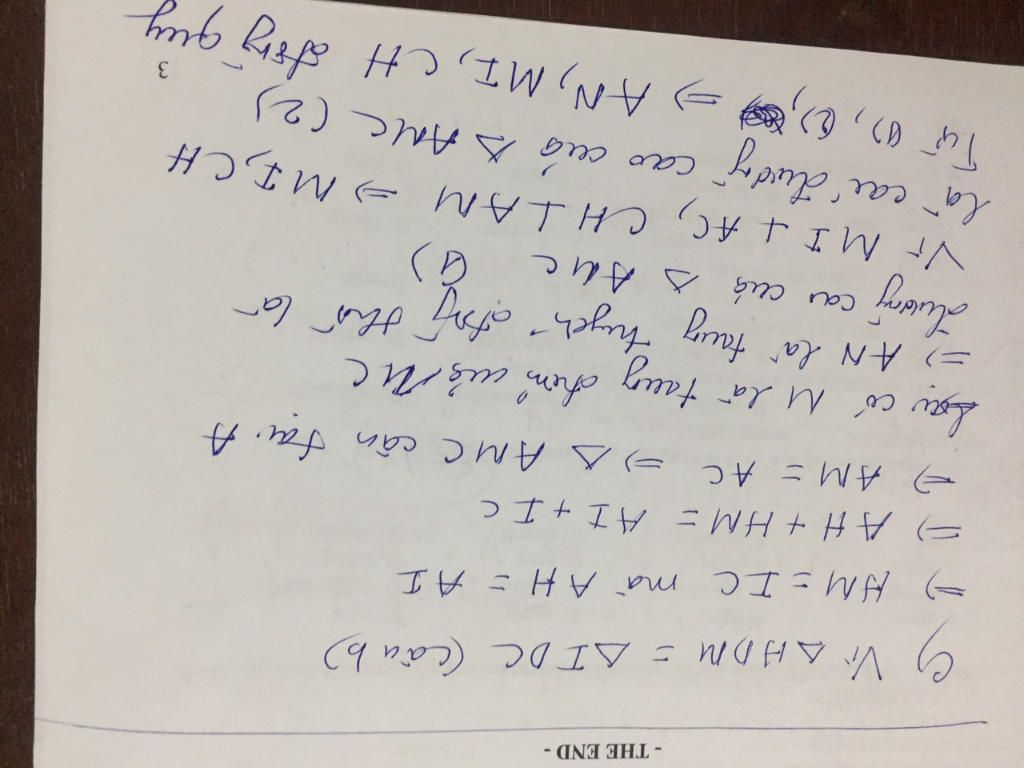 - THE END -
c) Vì △HDM = △IDC (câu b)
=> HM = IC mà AH = AI
=> AH + HM = AI + IC
=> AM = AC => △ AMC cân tại A
Lại có M là trung điểm của MC
=> AN là trung tuyến đồng thời là
đường cao của △ AMC (1)
Vì MI ⊥ AC, CH ⊥ AM => MI, CH
là các đường cao của △ AMC (2)
Từ (1), (2), => AN, MI, CH đồng quy
3